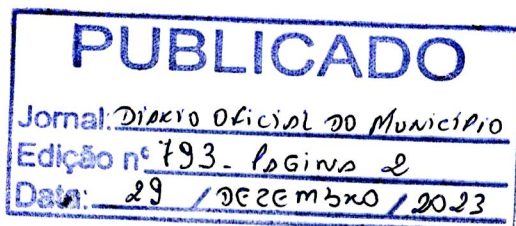 PUBLICADO
Jornal: Diário Oficial do Município
Edição nº 793 - Página 2
Data: 29 / DEZEMBRO / 2023